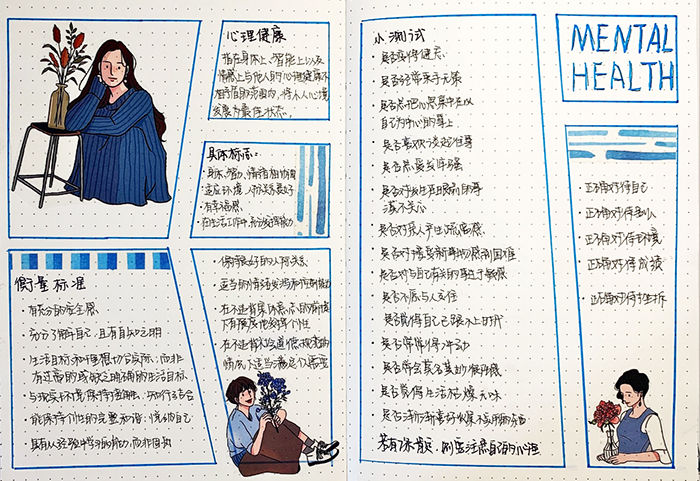 心理健康
指在身体上、智能上以及
情感上与他人的心理健康不
相矛盾的范围内，将个人心境
发展为最佳状态。
具体标志：
·身体、智力、情绪相协调
·适应环境、人际关系良好
·有幸福感
·在生活工作中，充分发挥能力
衡量标准
·有充分的安全感
·充分了解自己，且有自知之明
·生活目标和理想切合实际，而非
有过高的或缺乏明确的生活目标
·与现实环境保持接触，知行结合
·能保持个性的完整和谐；悦纳自己
·具有从经验中学习的能力，而非自负
·保持良好的人际关系
·适当的情绪发泄和控制能力
·在不违背集体意志的前提
下有限度地发挥个性
·在不违背社会道德规范的
情况下适当满足个人需要
小测试
·是否变得健忘
·是否经常束手无策
·是否总把心思集中在以
自己为中心的事上
·是否喜欢谈起往事
·是否总爱发牢骚
·是否对发生在眼前的事
漠不关心
·是否对亲人产生疏离感
·是否对接受新事物感到困难
·是否对与自己有关的事过于敏感
·是否不愿与人交往
·是否觉得自己已跟不上时代
·是否常常很冲动
·是否常会莫名其妙
·是否觉得生活枯燥无味
·是否渐渐喜好收集不实用的东西
若有 则要注意自己的心理
MENTAL
HEALTH
·正确对待自己
·正确对待别人
·正确对待环境
·正确对待成绩
·正确对待挫折